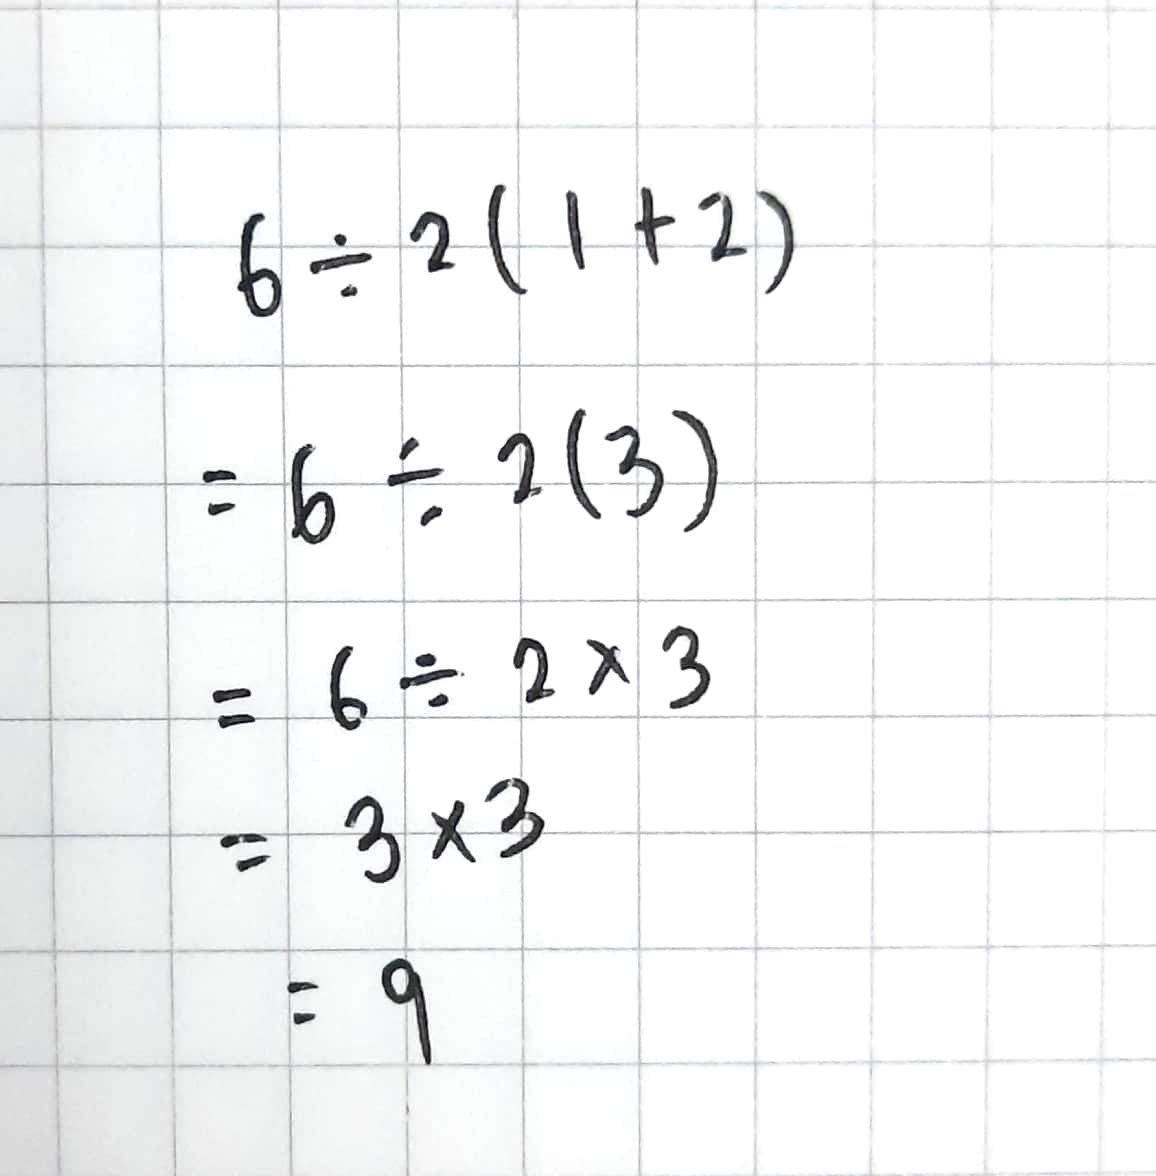 6 ÷ 2 ( 1 + 2 )
= 6 ÷ 2 ( 3 )
= 6 ÷ 2 × 3
= 3 × 3
= 9